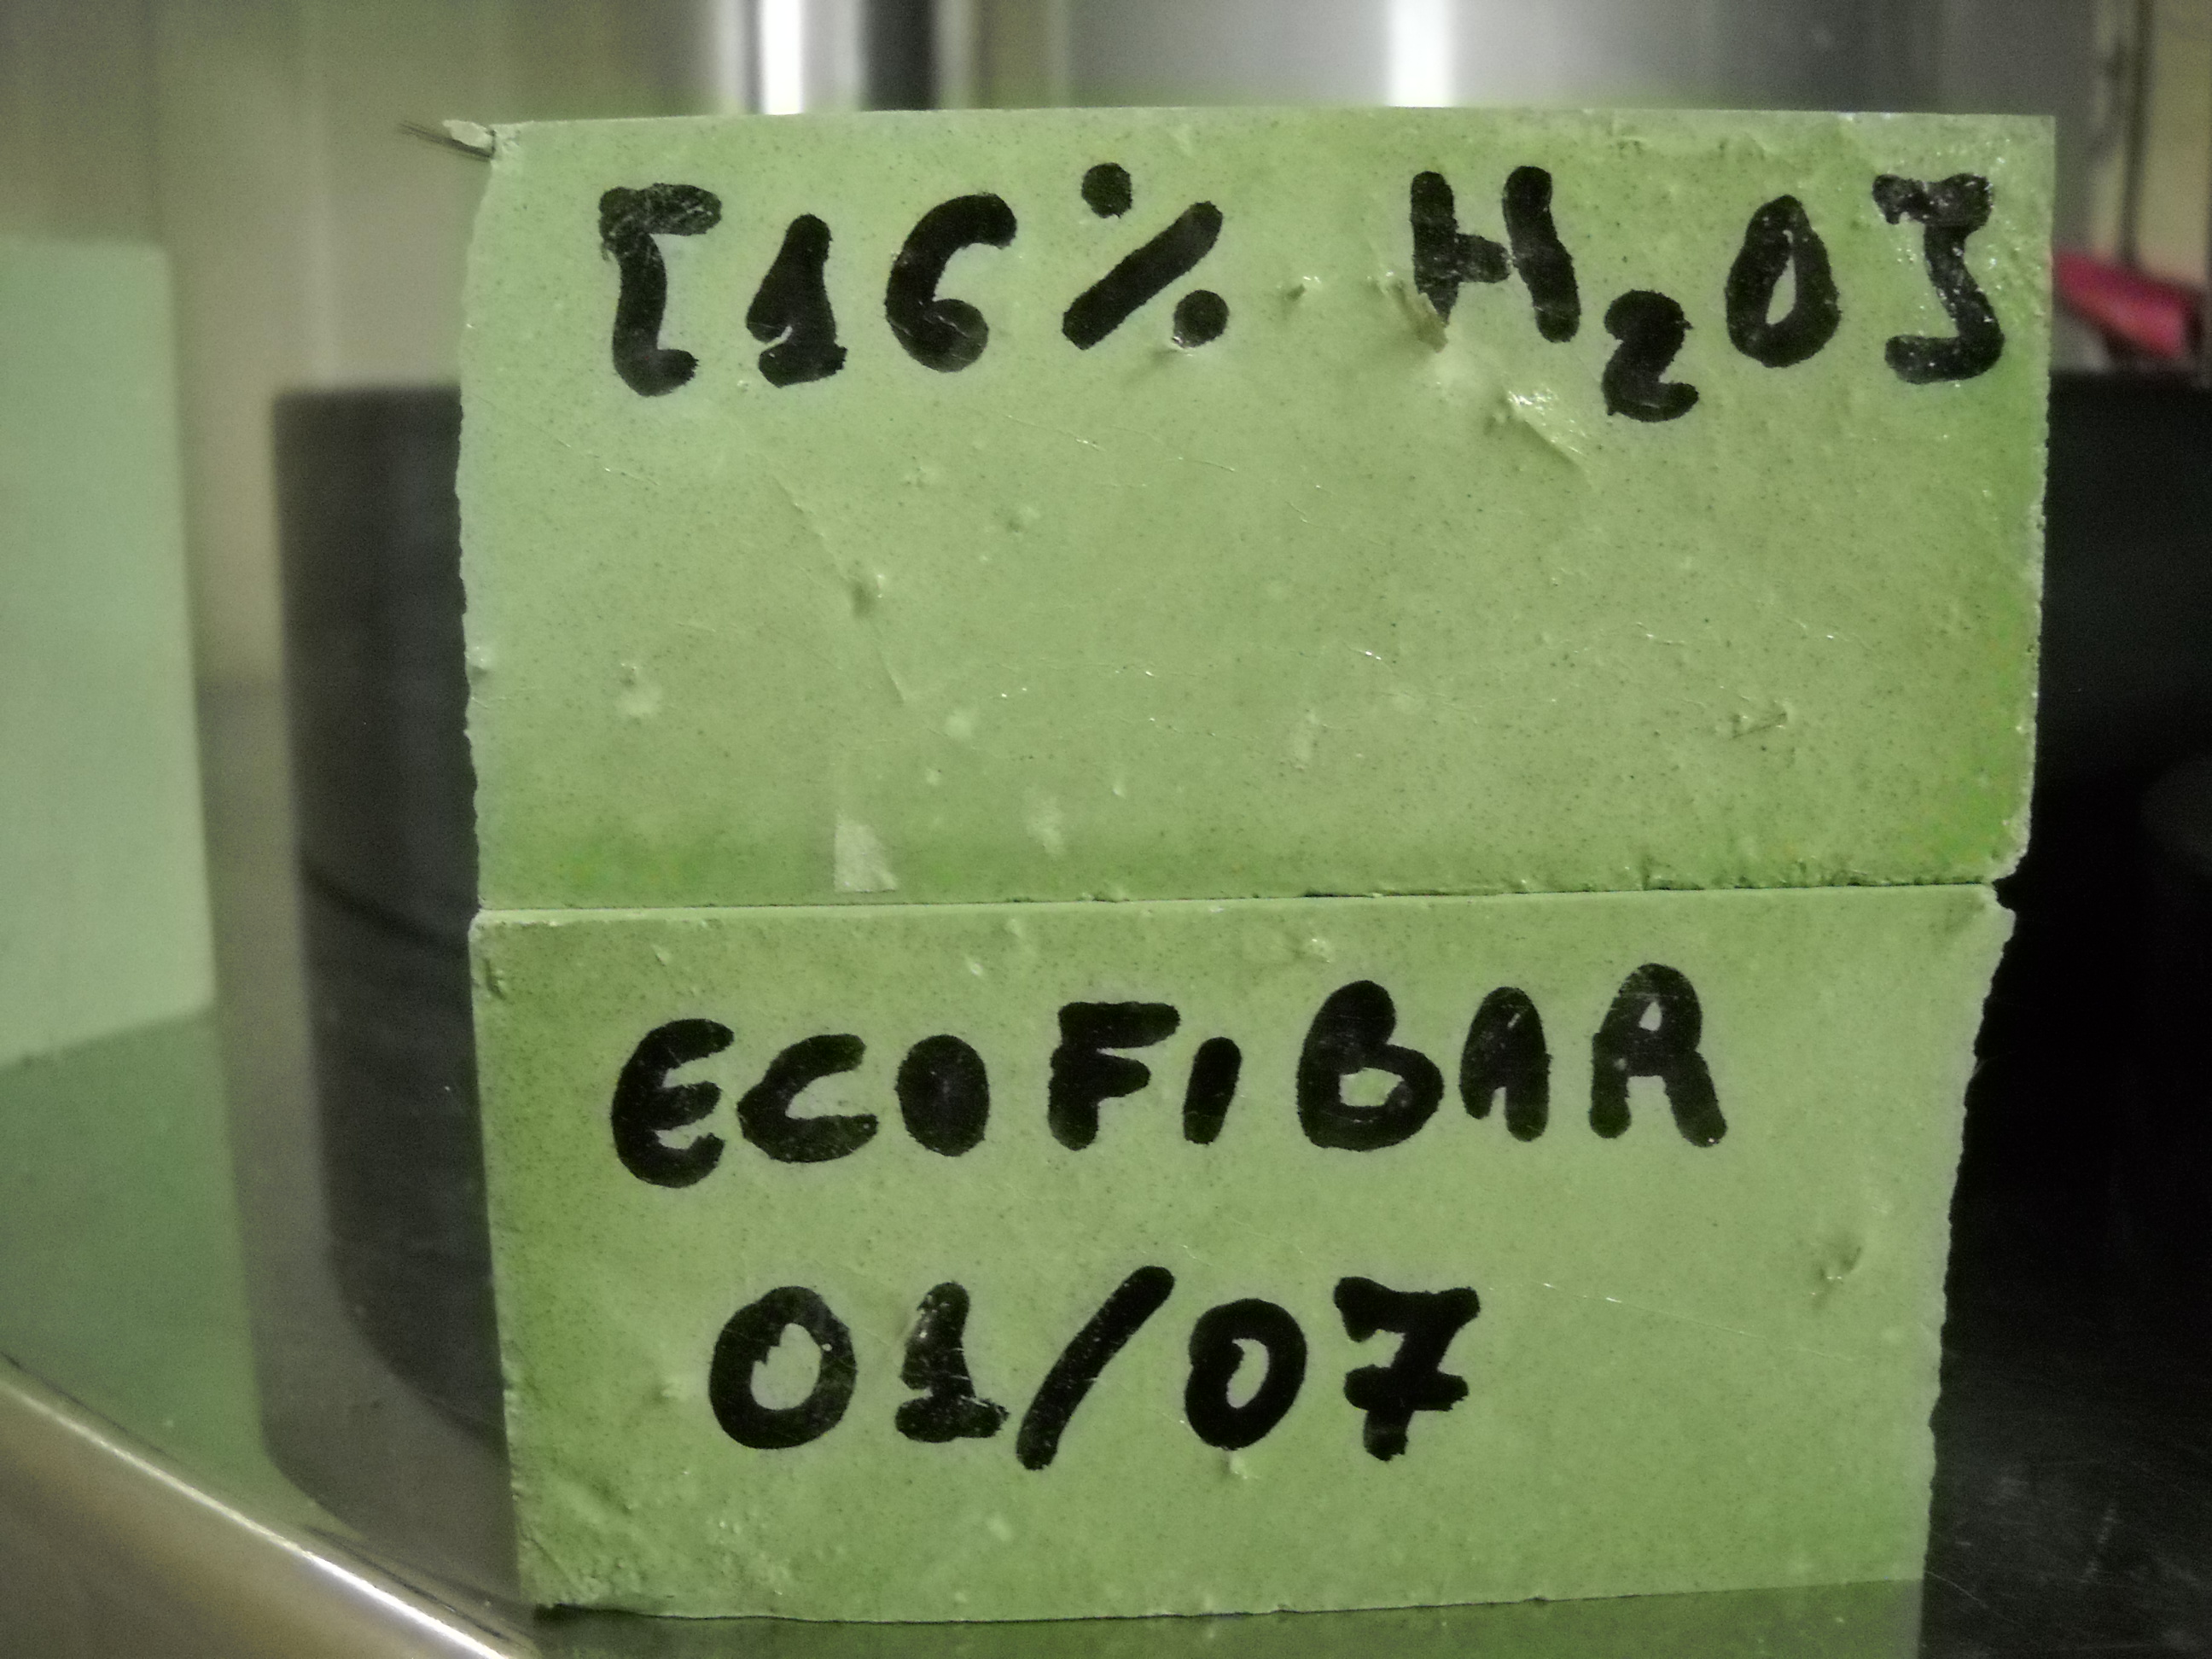 [16% H₂O]
ECOFIBAR
01/07